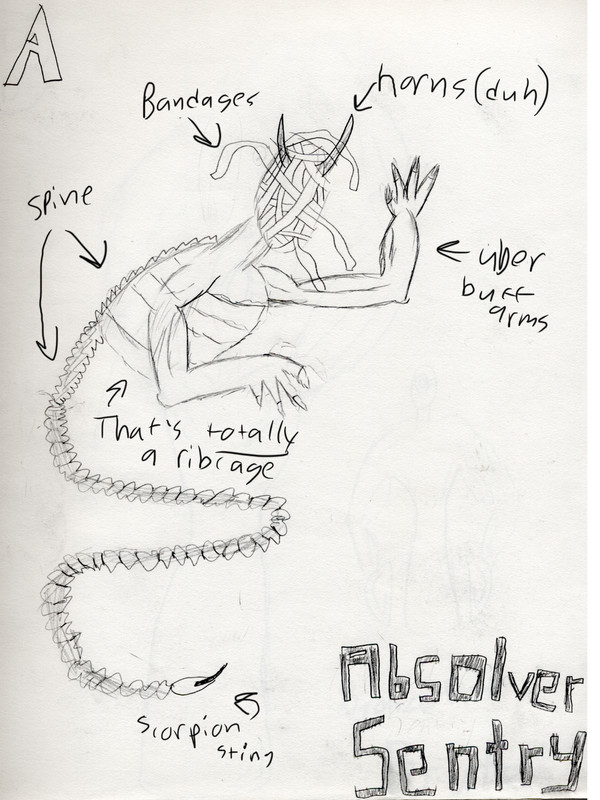 A
Bandages
horns (duh)
spine
über
buff
arms
That's totally
a ribcage
scorpion
sting
Absolver
Sentry